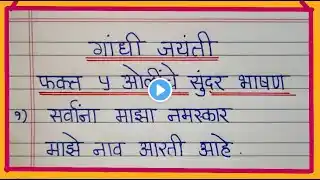 गांधी जयंती
फक्त ५ ओळींचे सुंदर भाषण
१) सर्वांना माझा नमस्कार
माझे नाव आरती आहे.